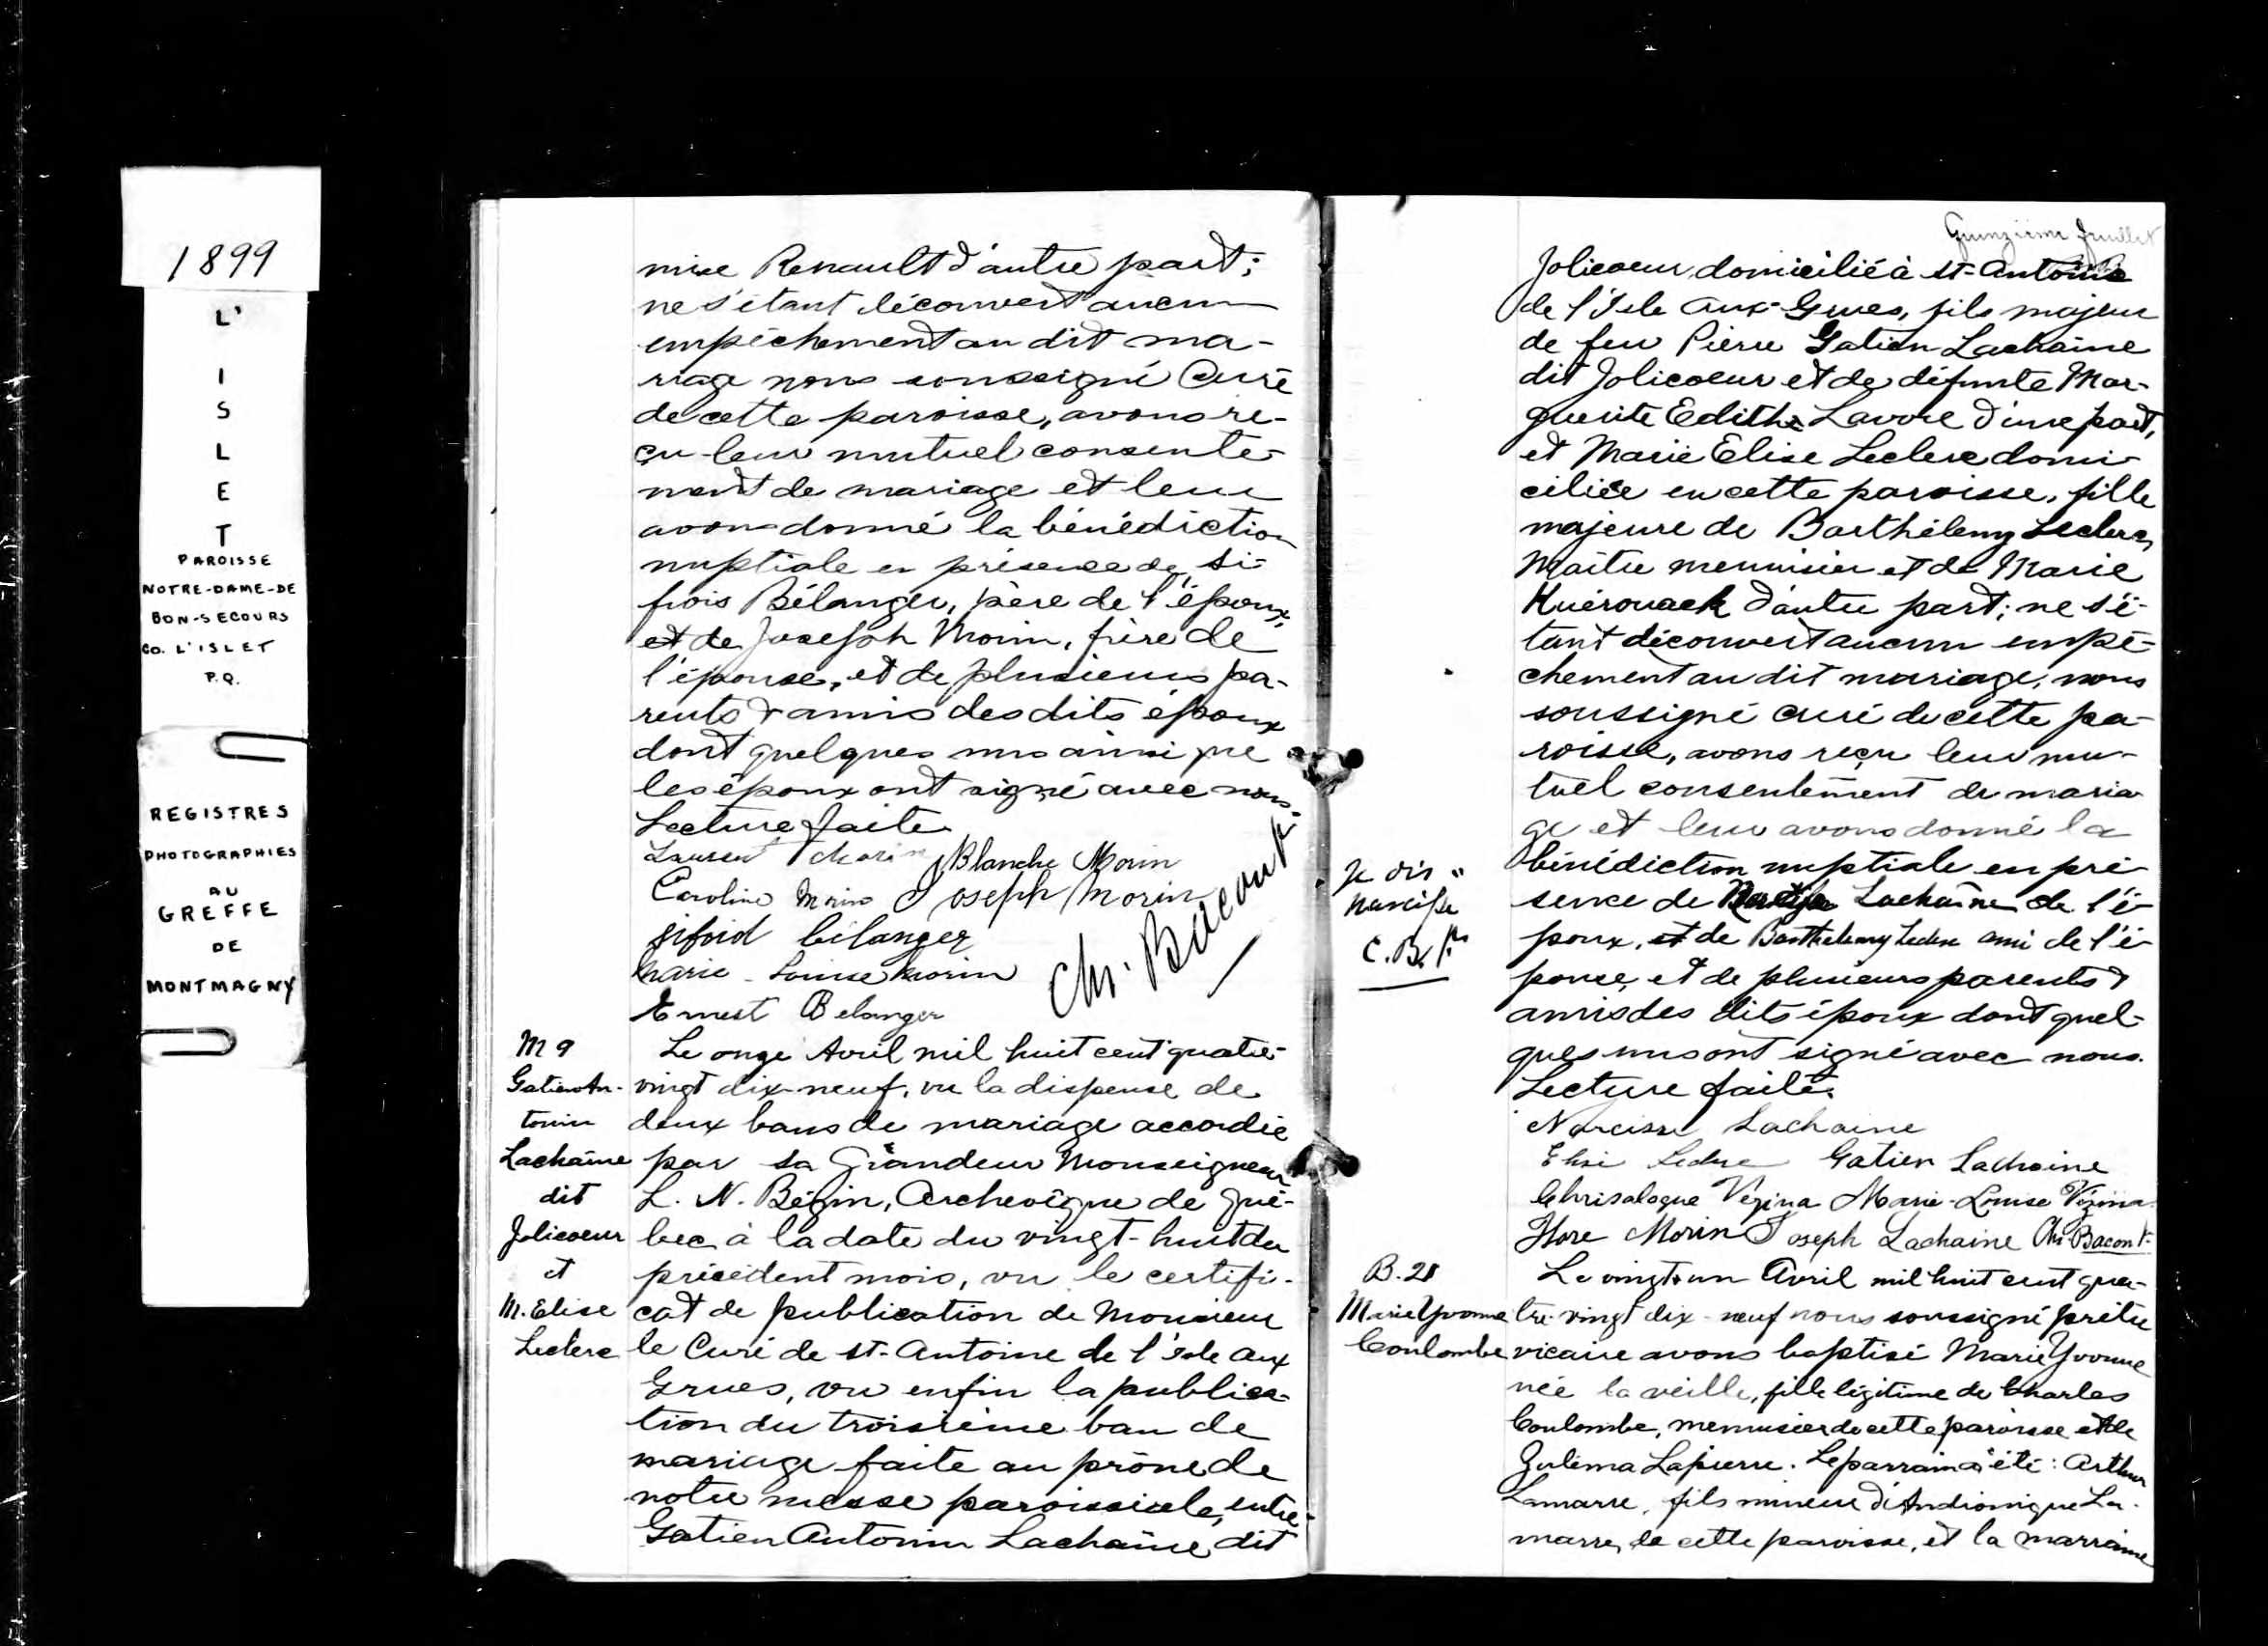 1899
L'
I
S
L
E
T
PAROISSE
NOTRE-DAME-DE
BON-SECOURS
CO. L'ISLET
P.Q.
REGISTRES
PHOTOGRAPHIES
AU
GREFFE
DE
MONTMAGNY
mise Renault d'autre part;
ne s'étant découvert aucun
empêchement au dit ma-
riage nous soussigné Curé
de cette paroisse, avons re-
çu leur mutuel consente-
ment de mariage et leur
avons donné la bénédiction
nuptiale en présence de Si-
frois Bélanger, père de l'époux,
et de Joseph Morin, frère de
l'épouse, et de plusieurs pa-
rents & amis des dits époux
dont quelques uns ainsi que
les époux ont signé avec nous.
Lecture faite.
Laurent Blanche Morin
Caroline Morin Joseph Morin
sifoid bélanger
Marie-Louise Morin
Ernest Belanger
Ch. Bacon Pt.
M 9
Gatien An-
tonin
Lachaîne
dit
Jolicoeur
et
M. Elise
Leclerc
Le onze Avril mil huit cent quatre-
vingt dix-neuf, vu la dispense de
deux bans de mariage accordée
par Sa Grandeur Monseigneur
L. N. Bégin, Archevêque de Qué-
bec à la date du vingt-huit du
précédent mois, vu le certifi-
cat de publication de Monsieur
le Curé de St-Antoine de l'Isle aux
Grues, vu enfin la publica-
tion du troisième ban de
mariage faite au prône de
notre messe paroissiale, entre
Gatien Antonin Lachaîne dit
Quinzième feuillet
Jolicoeur, domicilié à St-Antoine
de l'Isle aux-Grues, fils majeur
de feu Pierre Gatien Lachaîne
dit Jolicoeur et de défunte Mar-
guerite Edithe Lavoie d'une part,
et Marie Elise Leclerc domi-
ciliée en cette paroisse, fille
majeure de Barthélemy Leclerc,
Maître menuisier et de Marie
Kuérouack d'autre part; ne s'é-
tant découvert aucun empê-
chement au dit mariage, nous
soussigné curé de cette pa-
roisse, avons reçu leur mu-
tuel consentement de maria-
ge et leur avons donné la
bénédiction nuptiale en pré-
sence de Lachaîne de l'é-
poux, et de Barthelemy Leclerc ami de l'é-
pouse, et de plusieurs parents &
amis des dits époux dont quel-
ques uns ont signé avec nous.
Lecture faite.
Je dis "
Narcisse
C. B. Ptre
Narcisse Lachaine
Elise Leclerc Gatien Lachaine
Chrisologue Vézina Marie-Louise Vézina
Flore Morin Joseph Lachaine Ch. Bacon Pt.
B. 21
Marie Yvonne
Coulombe
Le vingt un Avril mil huit cent qua-
tre-vingt dix-neuf nous soussigné prêtre
vicaire avons baptisé Marie Yvonne
née la veille, fille légitime de Charles
Coulombe, menuisier de cette paroisse et de
Zulema Lapierre. Le parrain a été: Arthur
Lamarre, fils mineur d'Andronique La-
marre, de cette paroisse, et la marraine